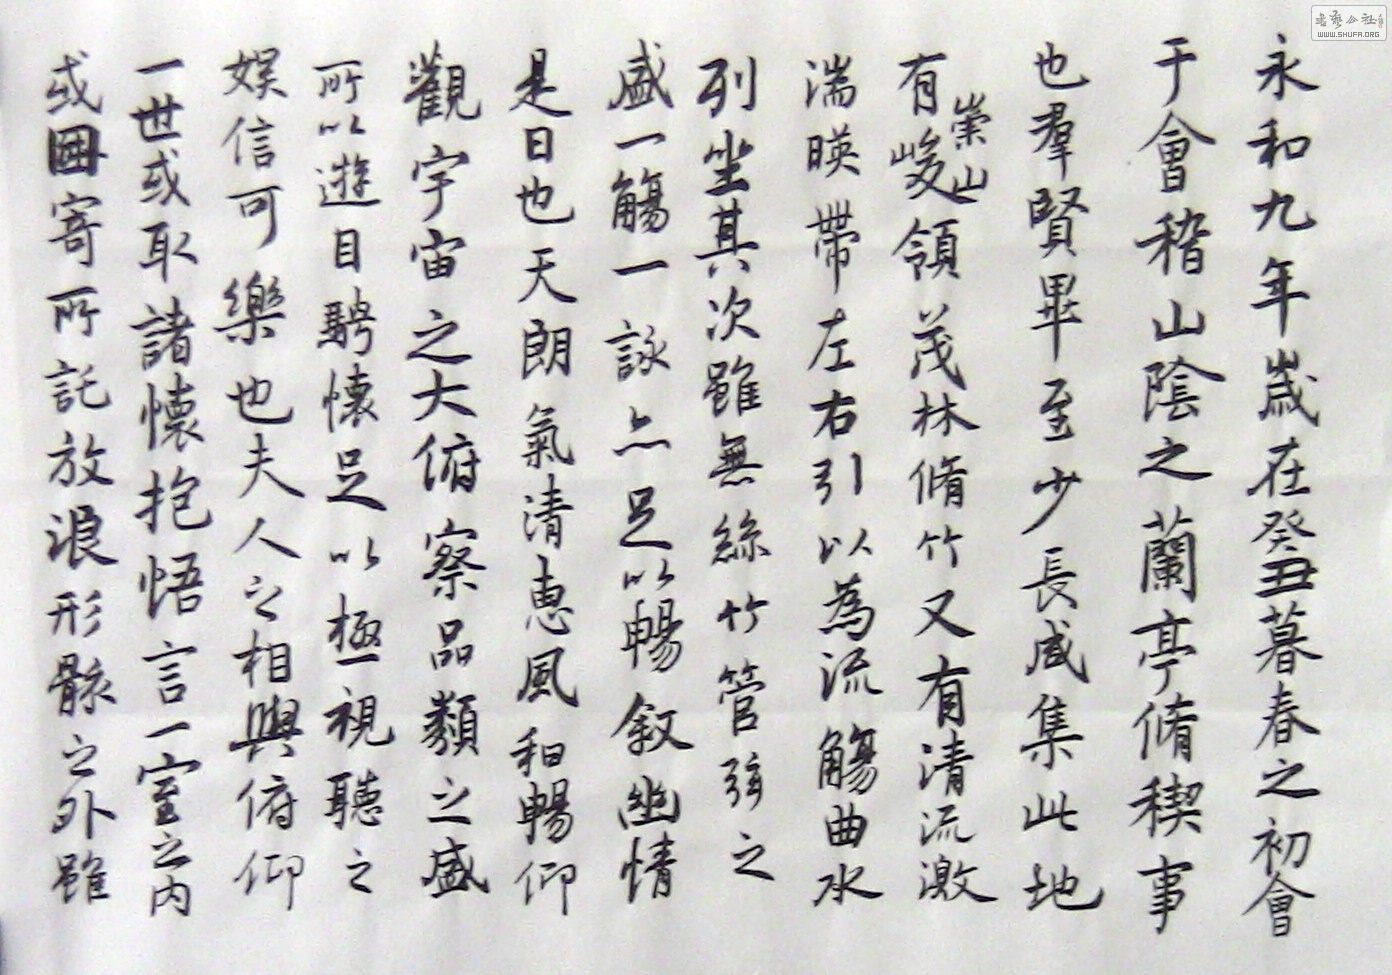 永和九年歲在癸丑暮春之初會
于會稽山陰之蘭亭脩稧事
也羣賢畢至少長咸集此地
有崇山峻領茂林脩竹又有清流激
湍暎帶左右引以為流觴曲水
列坐其次雖無絲竹管弦之
盛一觴一詠亦足以暢叙幽情
是日也天朗氣清惠風和暢仰
觀宇宙之大俯察品類之盛
所以遊目騁懷足以極視聽之
娛信可樂也夫人之相與俯仰
一世或取諸懷抱悟言一室之內
或因寄所託放浪形骸之外雖
書藝公社
WWW.SHUFA.ORG